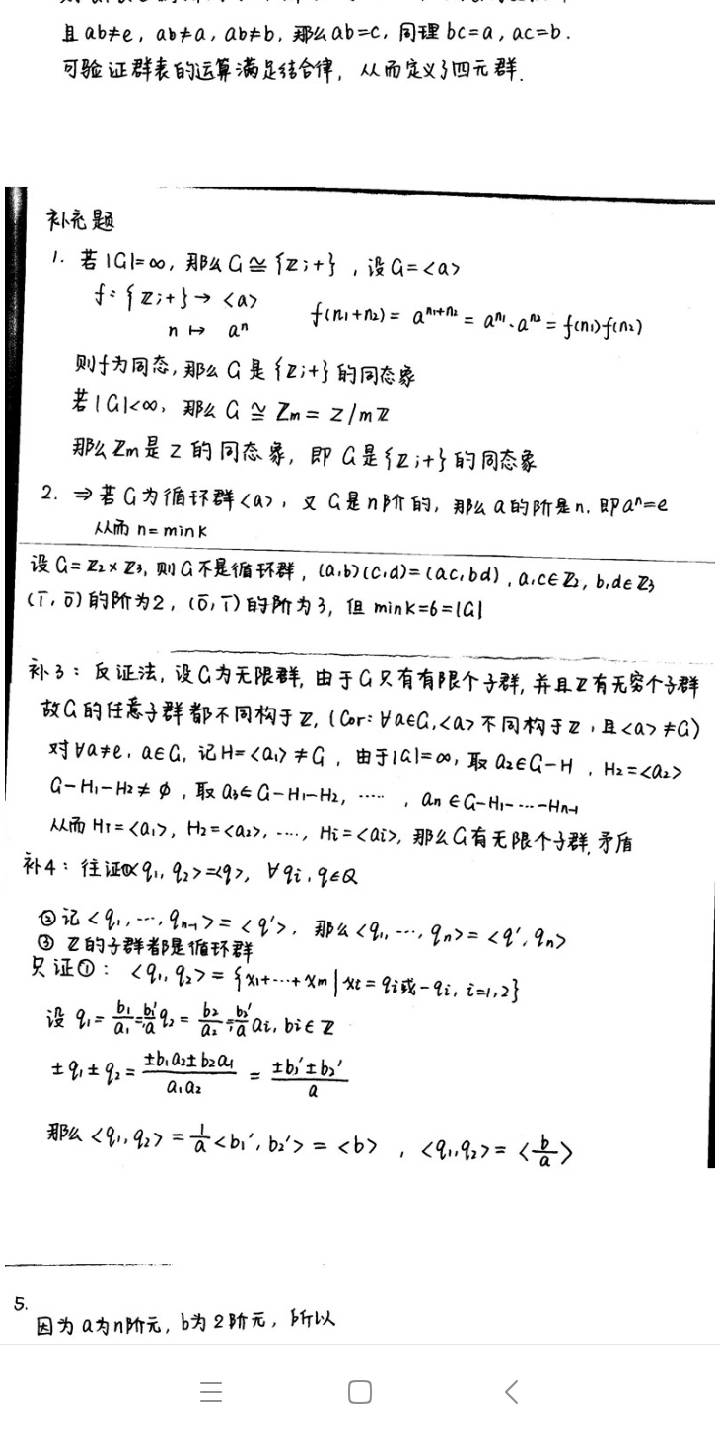 且ab≠e, ab≠a, ab≠b, 那么ab=c, 同理bc=a, ac=b.
可验证群表的运算满足结合律, 从而定义了四元群.
补充题
1. 若|G|=∞, 那么G≅{Z;+}, 设G=<a>
f: {Z;+}→<a>
n ↦ aⁿ f(n₁+n₂)=a^{n₁+n₂}=a^{n₁}·a^{n₂}=f(n₁)f(n₂)
则f为同态, 那么G是{Z;+}的同态象
若|G|<∞, 那么G≅Zm=Z/mZ
那么Zm是Z的同态象, 即G是{Z;+}的同态象
2. ⇒若G为循环群<a>, 又G是n阶的, 那么a的阶是n, 即aⁿ=e
从而n=mink
设G=Z₂×Z₃, 则G不是循环群, (a,b)(c,d)=(ac,bd), a,c∈Z₂, b,d∈Z₃
(1̄,0̄)的阶为2, (0̄,1̄)的阶为3, 但mink=6=|G|
补3: 反证法, 设G为无限群, 由于G只有有限个子群, 并且Z有无穷个子群
故G的任意子群都不同构于Z, (Cor: ∀a∈G, <a>不同构于Z, 且<a>≠G)
对∀a≠e, a∈G, 记H=<a₁>≠G, 由于|G|=∞, 取a₂∈G-H, H₂=<a₂>
G-H₁-H₂≠∅, 取a₃∈G-H₁-H₂, ……, an∈G-H₁-…-Hn-1
从而H₁=<a₁>, H₂=<a₂>, …, Hi=<ai>, 那么G有无限个子群, 矛盾
补4: 往证①<q₁, q₂>=<q>, ∀qi, q∈Q
②记<q₁, …, qn-1>=<q'>, 那么<q₁, …, qn>=<q', qn>
③Z的子群都是循环群
只证①: <q₁, q₂>={x₁+…+xm|xi=qi或-qi, i=1,2}
设q₁=b₁/a₁=b₁'/a q₂=b₂/a₂=b₂'/a ai, bi∈Z
±q₁±q₂=(±b₁a₂±b₂a₁)/(a₁a₂)=(±b₁'±b₂')/a
那么<q₁, q₂>=1/a<b₁', b₂'>=<b>, <q₁, q₂>=<b/a>
5.
因为a为n阶元, b为2阶元, 所以